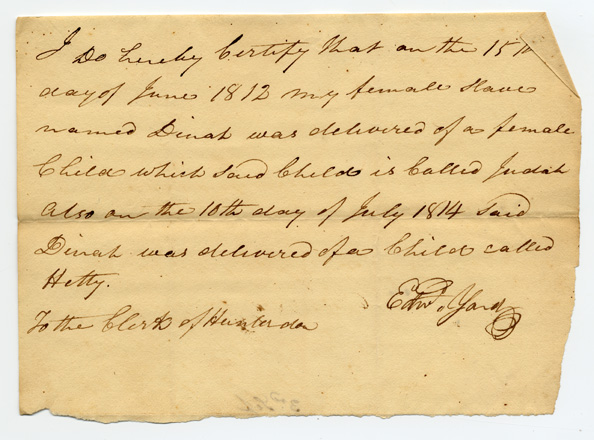 I Do hereby Certify that on the 15th
day of June 1812 my female slave
named Dinah was delivered of a female
Child which said Child is Called Judah
also on the 10th day of July 1814 said
Dinah was delivered of a Child called
Hetty.
Edwd. Yard
To the Clerk of Hunterdon